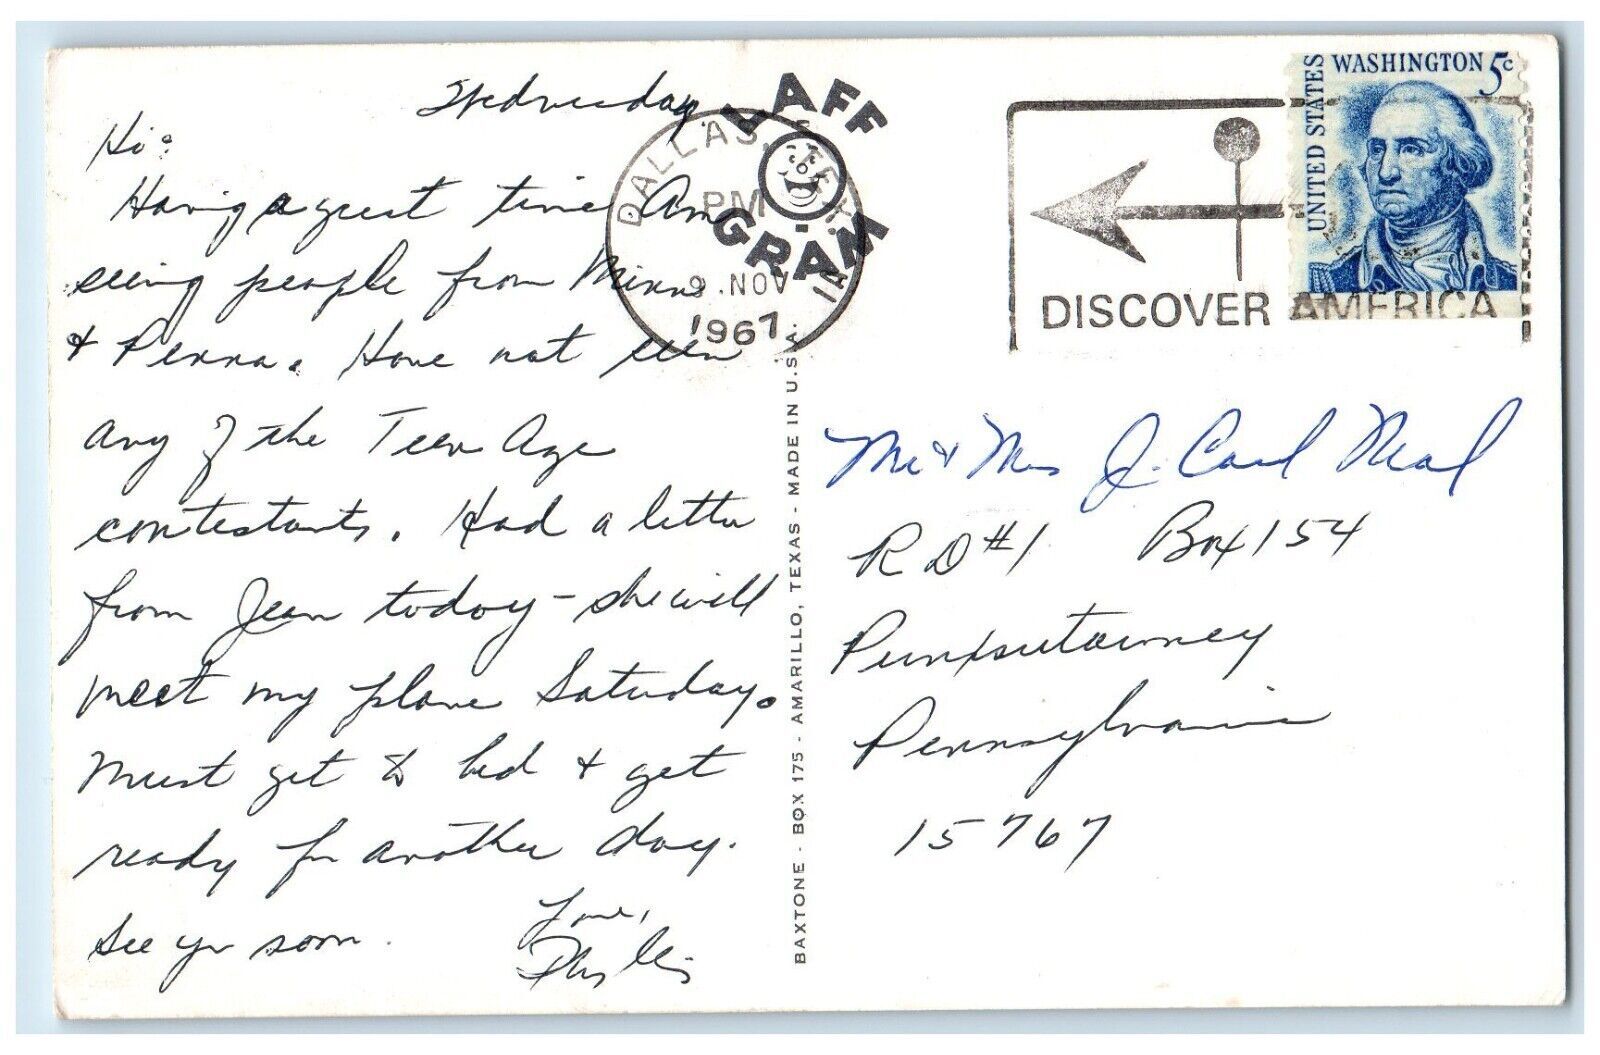 Wednesday
Hi:
Having a great time. Am
seeing people from Minn.
& Penna. Have not seen
any of the Teen Age
contestants. Had a letter
from Jean today - she will
meet my plane Saturday.
Must get to bed & get
ready for another day.
See yu soon.
Love,
Phyllis
LAFF
GRAM
DALLAS, TEX.
PM
9 NOV
1967
1A
BAXTONE - BOX 175 - AMARILLO, TEXAS - MADE IN U.S.A.
DISCOVER AMERICA
UNITED STATES
WASHINGTON 5c
Mr & Mrs J. Carl Neal
RD #1 Box 154
Punxsutawney
Pennsylvania
15767